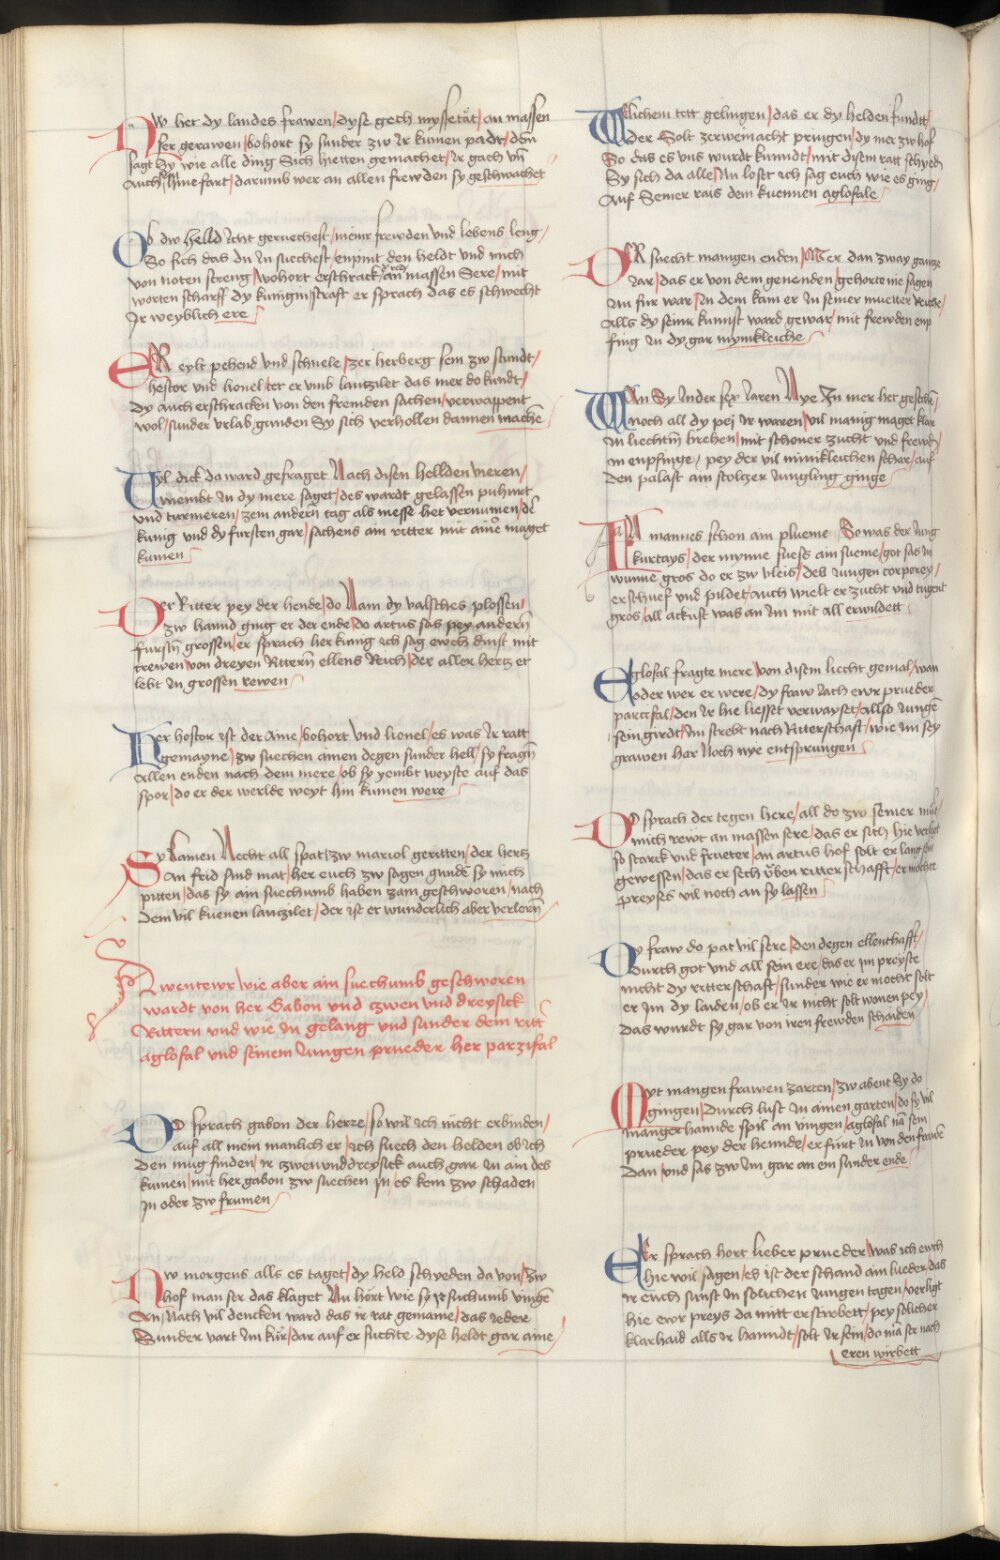 NW het dy landes frawen / dyse gech myssetat / an massen
ser gerawen / bohort sy sunder zw Ir kumen padt / dem
sagt Sy wie alle ding Sich hetten gemachet / Ir gach vn̄
auch hinefart / darumb wer an allen frewden sy geschwachet
Ob dw helld Icht geruechest / meinr frewden vnd lebens leng /
So sich das du In suechest / enpint den heldt vnd mich
von noten streng / wohort erschrack an massen Sere / mit
worten scharff dy kunigin straft er sprach das es schwecht
Ir weyblich ere
ER eylt pehend vnd schnele / zer herberg sein zw stundt /
hestor vnd lionel / tet er vmb lantzilet das mer do kundt /
dy auch erschracken von den fremden sachen / verwappent
wol / sunder vrlab gunden Sy sich verhollen dannen machē
Vyl dick da ward gefraget Nach disen hellden vieren /
niembt In dy mere saget / des wardt gelassen puhurt
vnd turnieren / zem andern tag als messe het vernumen / dē
kunig vnd dy fursten gar / sachens ain ritter mit ainē maget
kumen
Der Ritter pey der hende / do Nam dy valsches plossen /
zw hannd ging er der ende / do artus sas pey andern̄
furstn̄ grossen / er sprach her kunig ich sag ewch dinst mit
trewen / von dreyen Rittern̄ ellens Reich / der aller hertz er
lebt In grossen rewen
Her hostor ist der aine / bohort vnd lionel / es was Ir ratt
gemayne / zw suechen ainen degen sunder hell / sy fragn̄
allen enden nach dem mere / ob sy yembt weyste auf das
spor / do er der werlde weyt hin kumen were
Sy kamen Necht all spat / zw mariol geritten / der hertz
an frid sind mat / her euch zw sagen gunde sy mich
pitten / das sy ain suechumb haben zam geschworen / nach
dem vil kuenen lantzilet / der ist et wunderlich aber verlorn̄
Awentewr wie aber ain suechumb geschworen
wardt von her Gabon vnd zwen vnd dreysick
Rittern vnd wie In gelang vnd sunder dem ritt
aglofal vnd seinem Iungen prueder her parzifal
DO sprach gabon der herze / so wil ich nicht erbinden /
auf all mein manlich er / ich suech den helden ob ich
den mug finden / Ir zwenvnddreysick auch gar In ain des
kumen / mit her gabon zw suechen In / es kem zw schaden
In oder zw frumen
NW morgens alls es taget / dy held schyeden da von / zw
hof man ser das klaget Nu hort wie sy Ir suchumb vingē
an / Nach vil dencken ward das ir rat gemaine / das yeder
Sunder vart im kür / dar auf er suchte dyse heldt gar aine /
Welichem tett gelingen / das er dy helden fundt /
der Solt zerweinacht pringen / dy mer zw hof
So das es vns wurdt kunndt / mit disem ratt schyedn
Sy sich da alle / Nu loset ich sag euch wie es ging /
Auf Seiner rais dem kuennen aglofale
ER suecht manigen enden / Mer dan zway gantze
Iar / das er von dem genenden / gehorte nie sagen
Im fur war / In dem kam er In seiner mueter reiche /
Alls dy seinr kunft ward gewar / mit frewden enp
fing In dy gar mynikleiche
Wan Sy Inder sex Iaren Nye In mer het geschē /
noch all dy pej Ir waren / vil manig maget klar
In liechtn̄ brehen / mit schoner zucht vnd frewdn̄
In enpfinge / pey der vil minikleichen schar / auf
den palast ain stolczer Iungling ginge
Als mannes schon ain plueme So was der Iung
kurtays / der mynne suess ain sueme / got sas In
wunne gros do er zw vleis / deh Iungen corporey /
erschuef vnd pildet / auch wielt er zucht vnd tugent
gros / all ackust was an Im mit all erwildett
Aglofal fragte mere / von disem liecht gemal / wan
oder wer er were / dy fraw Iach ewr prueder
parcifal / den Ir hie liesset verwayset / allso Iungē
sein girdt / Im strebt nach Ritterschaft / wie im sey
grawen har Noch nye entsprungen
DO sprach der tegen here / all do zw seiner mūt /
mich rewt an massen sere / das er sich hie verligt
so starck vnd frueter / an artus hof solt er lang sein
gewessen / das er sech üben ritterschafft / er mochte
preyses vil noch an sy lassen
DY fraw do pat vil sere / den degen ellenthafft /
durch got vnd all sein ere / das er im preyste
nicht dy ritterschaft / sunder wie er mocht solt
er Im dy laiden / ob er Ir nicht solt wonen pey /
Das wurdt sy gar von iren frewden schaiden
Myt mangen frawen zarten / zw abent Sy do
gingen / Durch lust In ainen garten / do sy vil
manger hannde spil an vingen / aglofal nā sein
prueder pey der hennde / er furt In von den frawē
dan / vnd sas zw Im gar an ein sunder ende
Er sprach hort lieber prueder / was ich ewch
hie wil sagen / es ist der schand ain lueder / das
Ir euch sunst In solichen Iungen tagen / verligt
hie ewr preys da mitt erstirbett / pey solicher
klarhaid alls Ir hanndt / solt Ir sein / do mā ser nach
eren wirbett